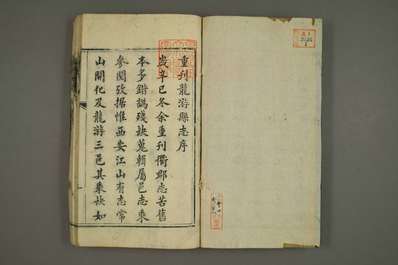 重刊龍游縣志序
歲辛巳冬余重刊衢郡志苦舊
本多錯譌殘缺蒐輯屬邑志乘
參閱攷据惟西安江山有志常
山開化及龍游三邑其乘缺如